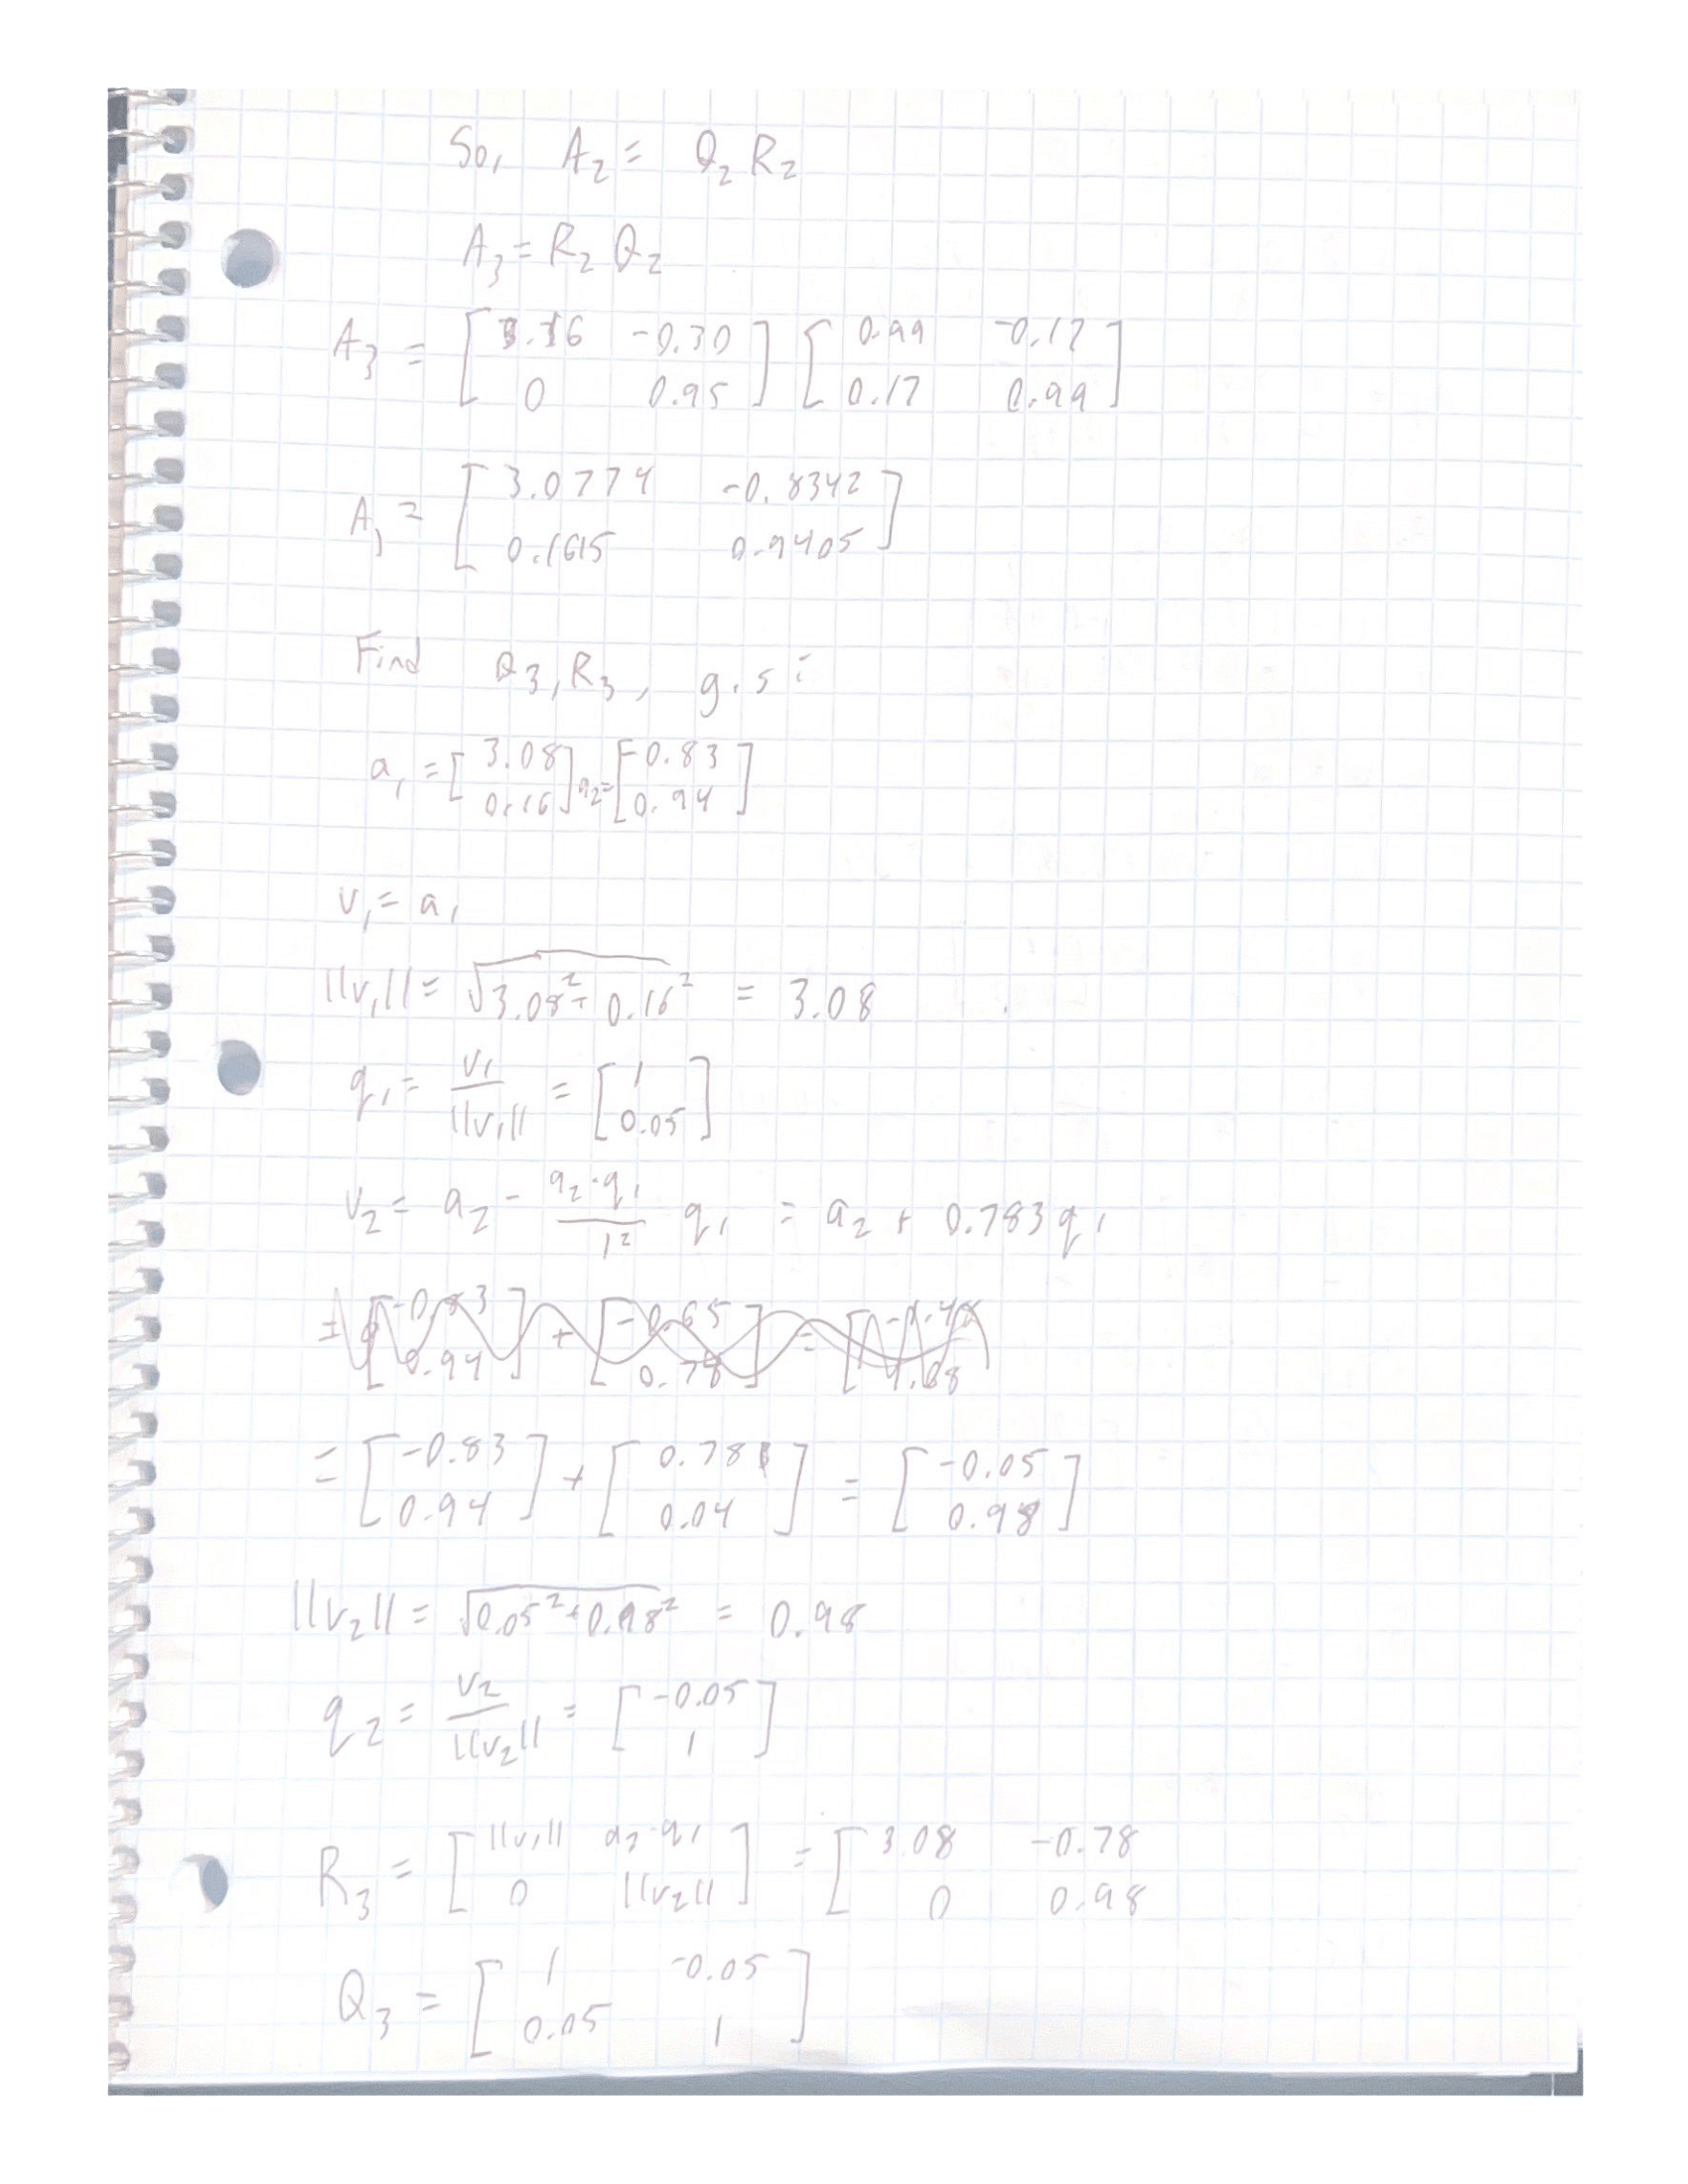 So, A₂ = Q₂ R₂
A₃ = R₂ Q₂
A₃ = [ 3.16 -0.30 ; 0 0.95 ] [ 0.99 -0.17 ; 0.17 0.99 ]
A₃ = [ 3.0774 -0.8342 ; 0.1615 0.9405 ]
Find Q₃, R₃, g.s:
a₁ = [ 3.08 ; 0.16 ] a₂ = [ -0.83 ; 0.94 ]
v₁ = a₁
||v₁|| = √(3.08² + 0.16²) = 3.08
q₁ = v₁ / ||v₁|| = [ 1 ; 0.05 ]
v₂ = a₂ - (a₂·q₁ / 1²) q₁ = a₂ + 0.783 q₁
= [ -0.83 ; 0.94 ] + [ -0.65 ; 0.78 ] = [ -1.48 ; 1.68 ]
= [ -0.83 ; 0.94 ] + [ 0.78 ; 0.04 ] = [ -0.05 ; 0.98 ]
||v₂|| = √(0.05² + 0.98²) = 0.98
q₂ = v₂ / ||v₂|| = [ -0.05 ; 1 ]
R₃ = [ ||v₁|| a₂·q₁ ; 0 ||v₂|| ] = [ 3.08 -0.78 ; 0 0.98 ]
Q₃ = [ 1 -0.05 ; 0.05 1 ]